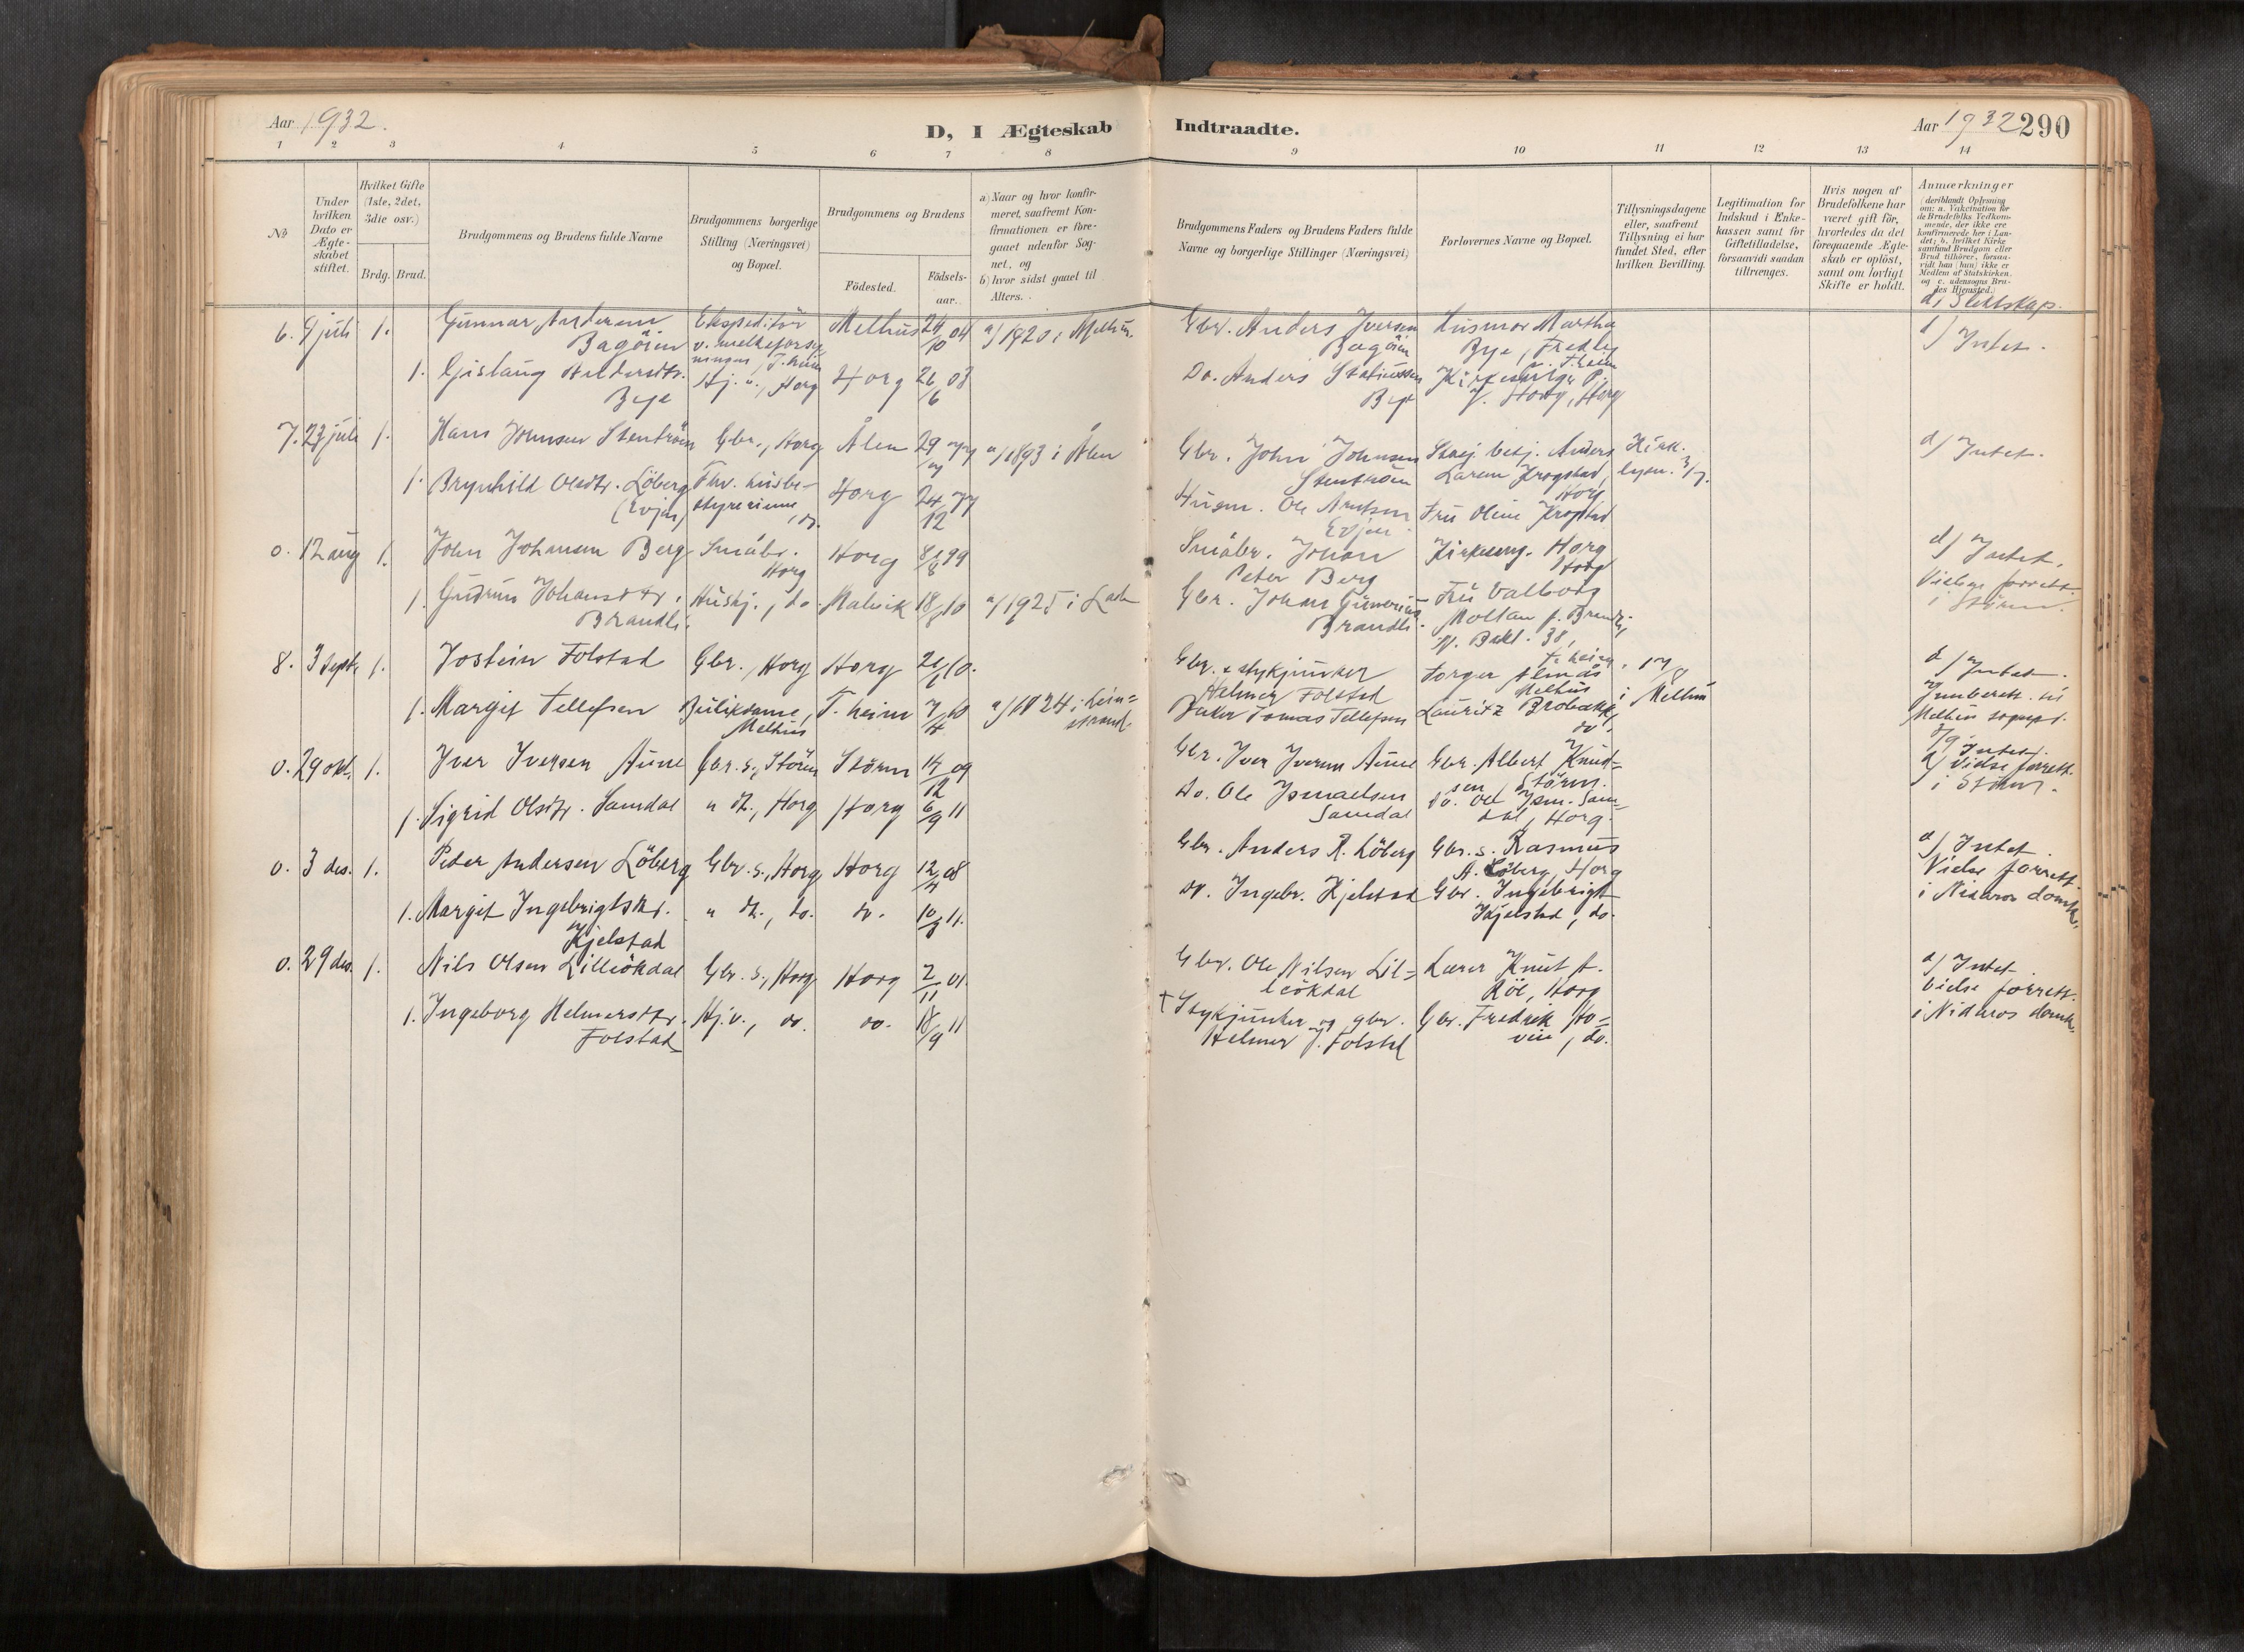 Aar 1932.
D, I Ægteskab Indtraadte.
Aar 1932 290
1 2 3 4 5 6 7 8 9 10 11 12 13 14
No
Under hvilken Dato er Ægteskabet stiftet.
Hvilket Gifte (1ste, 2det, 3die osv.)
Brdg. Brud.
Brudgommens og Brudens fulde Navne
Brudgommens borgerlige Stilling (Næringsvei) og Bopæl.
Brudgommens og Brudens
Födested.
Födsels-aar.
a) Naar og hvor konfir-
meret, saafremt Kon-
firmationen er fore-
gaaet udenfor Sog-
net, og
b) hvor sidst gaaet til
Alters.
Brudgommens Faders og Brudens Faders fulde
Navne og borgerlige Stillinger (Næringsvei)
Forlovernes Navne og Bopæl.
Tillysningsdagene
eller, saafremt
Tillysning ei har
fundet Sted, efter
hvilken Bevilling.
Legitimation for
Indskud i Enke-
kassen samt for
Giftetilladelse,
forsaavidt saadan
tiltrænges.
Hvis nogen af
Brudefolkene har
været gift för,
hvorledes da det
foregaaende Ægte-
skab er oplöst,
samt om lovligt
Skifte er holdt.
Anmærkninger
(deriblandt Oplysning
om: a. Vakcination for
de Brudefolks Vedkom-
mende, der ikke ere
konfirmerede her i Lan-
det; b. hvilket Kirke
samfund Brudgom eller
Brud tilhører, forsaa-
vidt han (hun) ikke er
Medlem af Statskirken.
og c. udensogns Bru-
des Hjemsted.)
d) Slektskap.
6. 9 juli 1. Gunnar Andersen Bagöien Ekspeditör v. melkeforsyningen, T.heim Melhus 24/10 04 a) 1920 i Melhus Gbr. Anders Iversen Bagöien Husmor Martha Bye, Fredly, T.heim d) Intet.
1. Gislaug Andersdtr. Bye Hj. v., Horg Horg 26/6 03 Do. Anders Bye Kirkesanger P. J. Horg, Horg
7. 23 juli 1. Hans Johnsen Stenströen Gbr., Horg Ålen 29 a) 1893 i Ålen Gbr. John Johnsen Stenströen Anders Larsen Krogstad, Horg Kirk. lysn. 3/7. d) Intet.
1. Brynhild Olsdtr. Löberg (Evjen) Fhv. husbestyrerinne, do. Horg 24/12 77 Husm. Ole Arntsen Evjen Fru Oline Krogstad
0. 12 aug 1. John Johansen Berg Småbr. Horg Horg 8/8 99 Småbr. Johan Peter Berg Kirkesang. Horg Horg d) Intet. Vielse forrett. i Stören.
1. Gudrun Johansdtr. Brandli. Hushj., do. Malvik 18/8 10 a) 1925 i Lade Gbr. Johan Brandli. Fru Valborg Moltau f. Brandli, Bakl. 38, T.heim.
8. 3 Sept. 1. Jostein Folstad Gbr., Horg Horg 21/1 10. Gbr. & stykjunker Helmer Folstad Torger Almås Melhus 17/8 i Melhus d) Intet. Innberett. til Melhus sogneprest
1. Margit Tellefsen Butikdame, Melhus T.heim 7/4 10 a) 1924 i Leinstrand Baker Tomas Tellefsen Lauritz Brobakk, do.
0. 29 okt. 1. Iver Iversen Aune Gbr. s., Stören Stören 14/12 09 Gbr. Iver Iversen Aune Gbr. Albert Knudsen Stören. d) Intet. Vielse forrett. i Stören.
1. Sigrid Olsdtr. Samdal " dt., Horg Horg 6/9 11 Do. Ole Ismaelsen Samdal do. Ole Ism. Samdal, Horg.
0. 3 des. 1. Peder Andersen Löberg Gbr. s., Horg Horg 12/4 08 Gbr. Anders R. Löberg Gbr. s. Rasmus A. Löberg, Horg d) Intet. Vielse forrett. i Nidaros domk.
1. Margit Ingebrigtsdtr. Kjelstad " dt., do. do. 10/8 11. do. Ingebr. Kjelstad Gbr. Ingebrigt Kjelstad, do.
0. 29 des. 1. Nils Olsen Lilleökdal Gbr. s., Horg Horg 2/11 01. Gbr. Ole Nilsen Lilleökdal Lærer Knut A. Röe, Horg d) Intet. Vielse forrett. i Nidaros domk.
1. Ingeborg Helmersdtr. Folstad Hj. v., do. do. 18/9 11 † Stykjunker og gbr. Helmer J. Folstad Gbr. Fredrik , do.